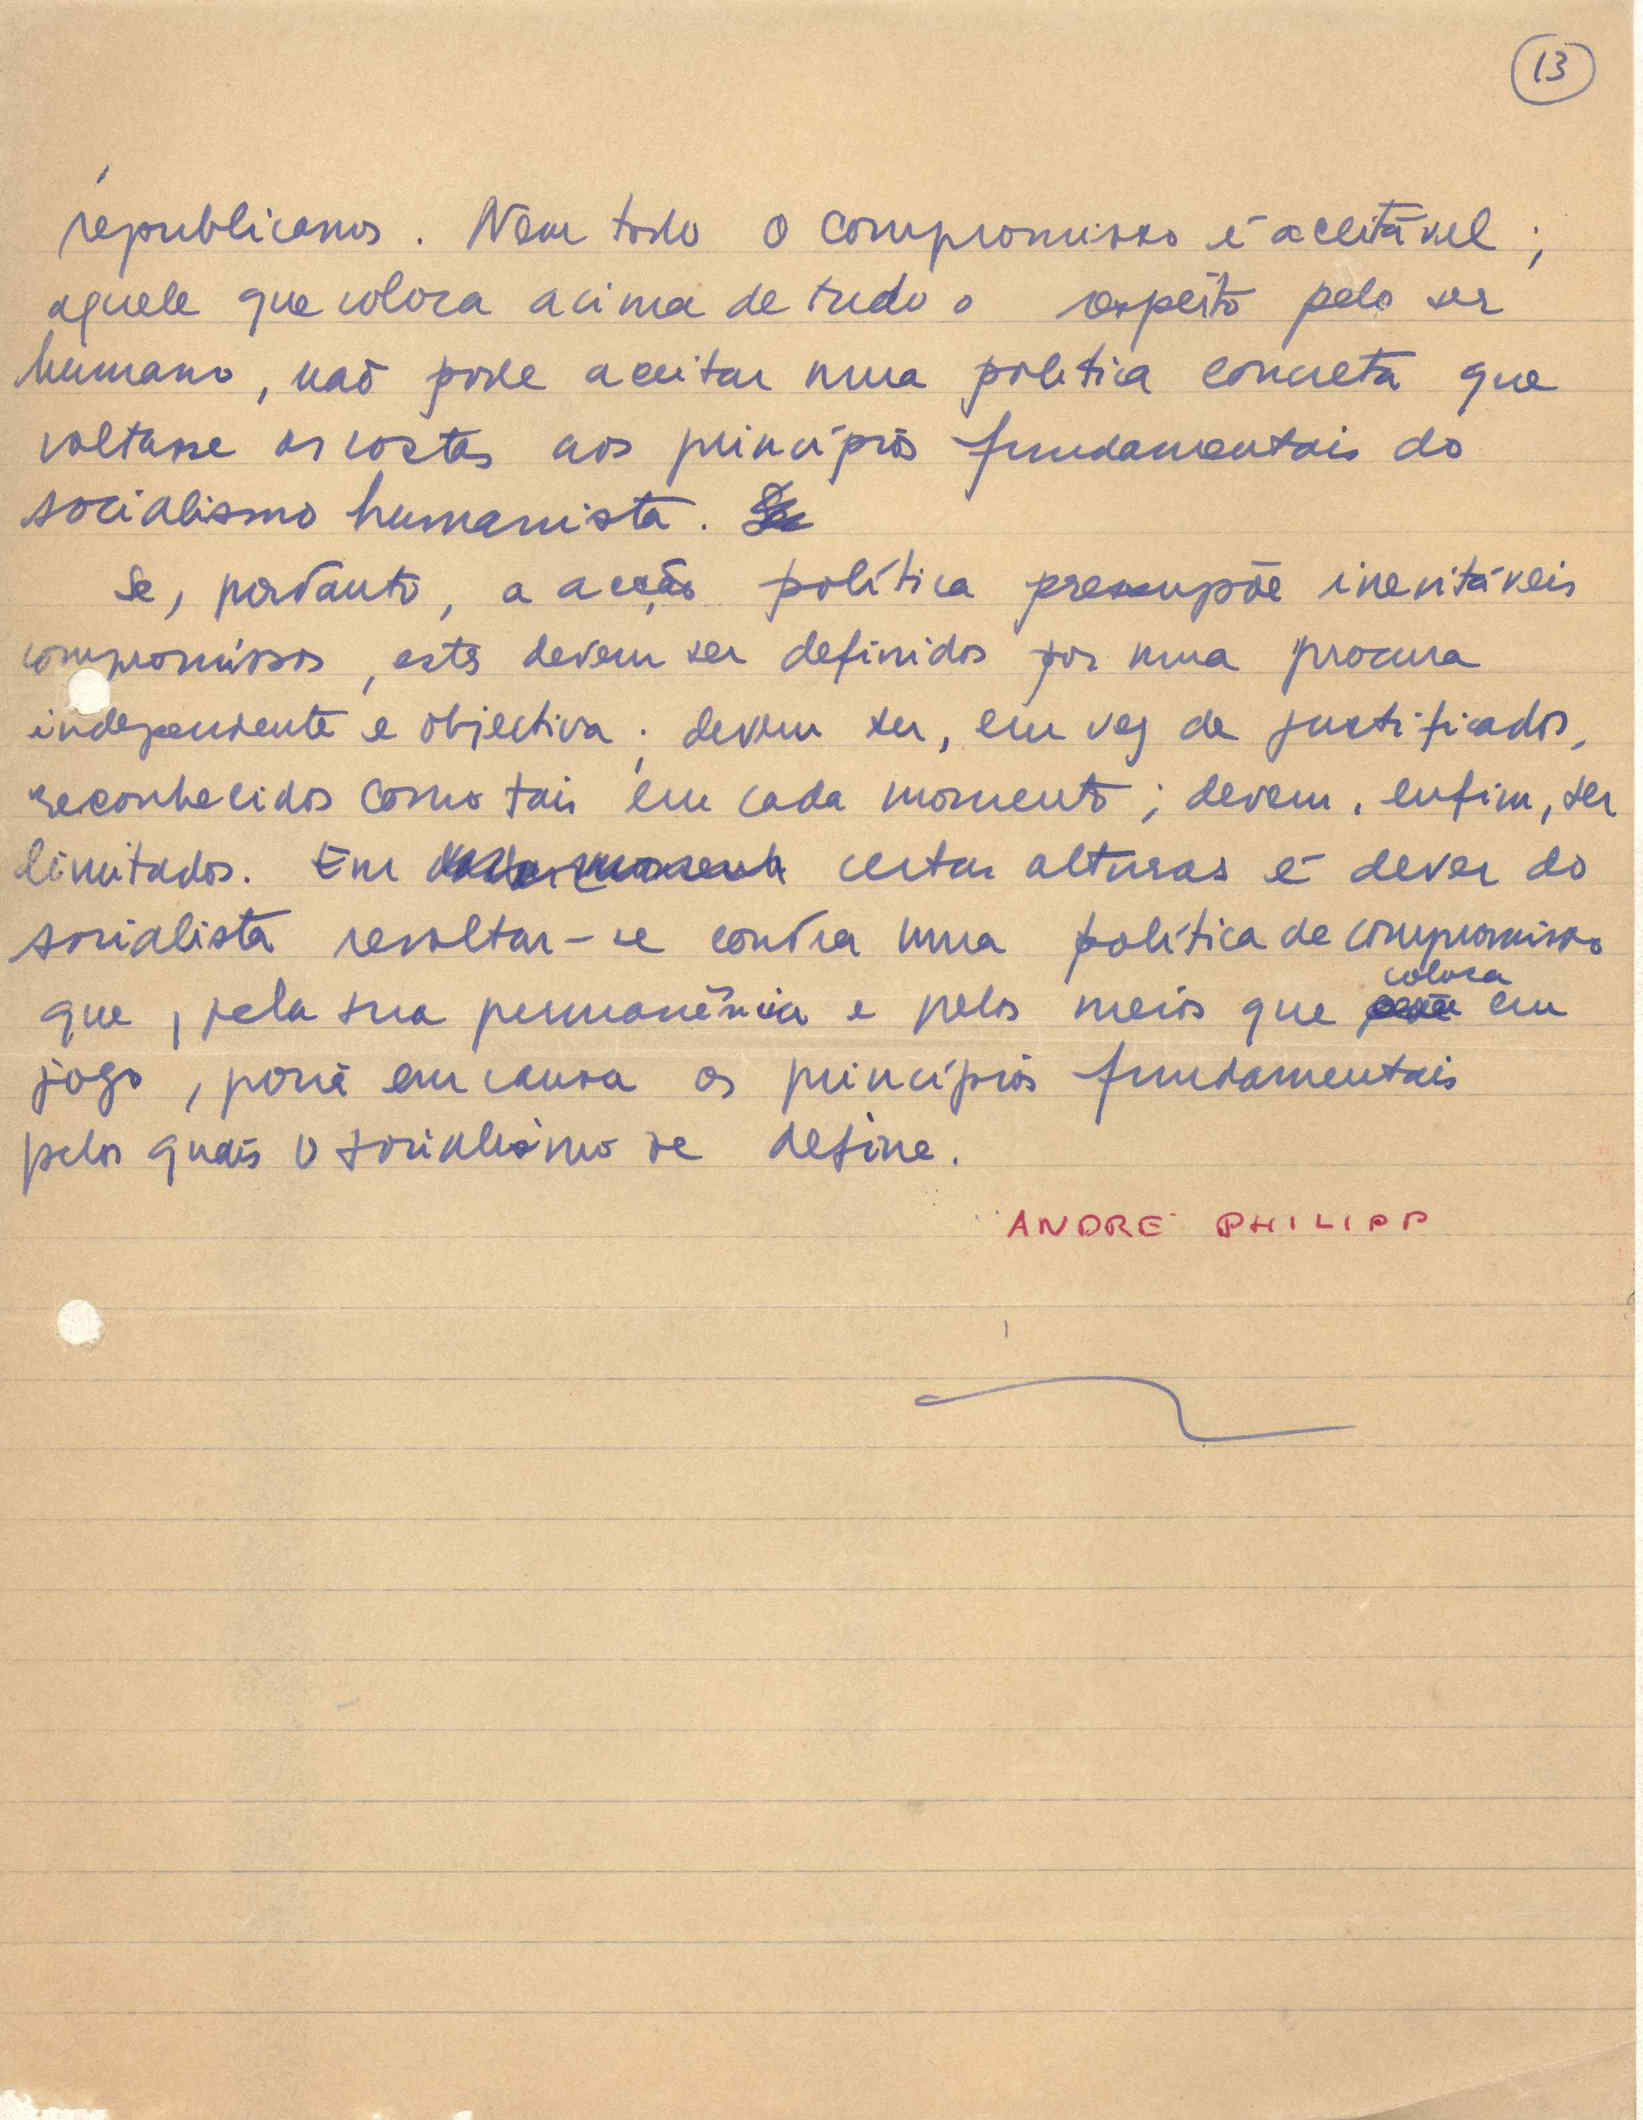 13
republicanos. Nem todo o compromisso é aceitável;
aquele que coloca acima de tudo o respeito pelo ser
humano, não pode aceitar uma política concreta que
voltasse as costas aos princípios fundamentais do
socialismo humanista. Se
Se, portanto, a acção política pressupõe inevitáveis
compromissos, estes devem ser definidos por uma procura
independente e objectiva; devem ser, em vez de justificados,
reconhecidos como tais em cada momento; devem, enfim, ser
limitados. Em certas alturas é dever do
socialista revoltar-se contra uma política de compromisso
coloca
que, pela sua permanência e pelos meios que em
jogo, poria em causa os princípios fundamentais
pelos quais o socialismo se define.
ANDRÉ PHILIPP